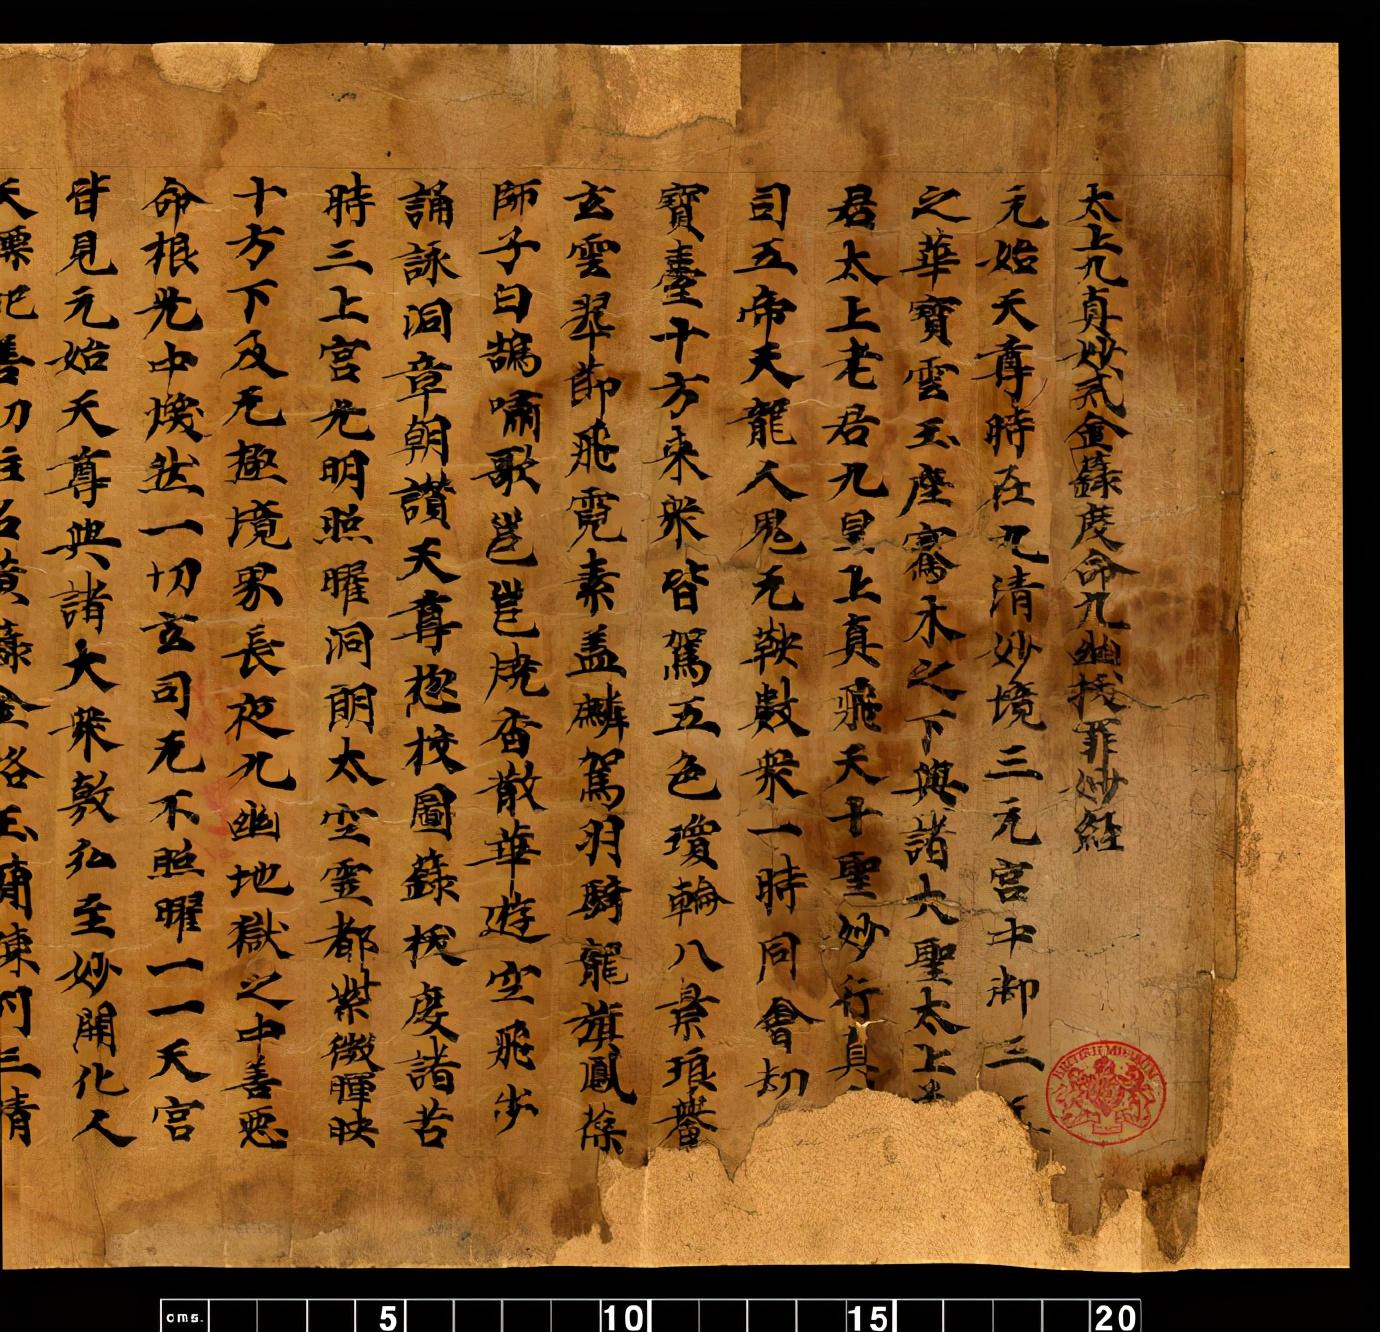 太上九真妙戒金籙度命九幽拔罪妙經
元始天尊時在九清妙境三元宮中御三
之華寶雲玉座騫木之下與諸大聖太上
君太上老君九皇上真飛天十聖妙行真
司五帝天龍人鬼无鞅數衆一時同會劫
寶臺十方來衆皆駕五色瓊輪八景琅轝
玄雲翠節飛霓素盖麟駕羽騎龍旂鳳葆
師子白鵠嘯歌邕邕燒香散華遊空飛步
誦詠洞章朝讚天尊揔校圖籙拔度諸苦
時三上宮光明照曜洞朗太空靈都紫微暉映
十方下及无極境界長夜九幽地獄之中善惡
命根光中煥然一切玄司无不照曜一一天宮
皆見元始天尊與諸大衆敷弘至妙開化人
天標記善功注名黃籙金格玉陳列三清
BRITISH MUSEUM
cms. 5 10 15 20